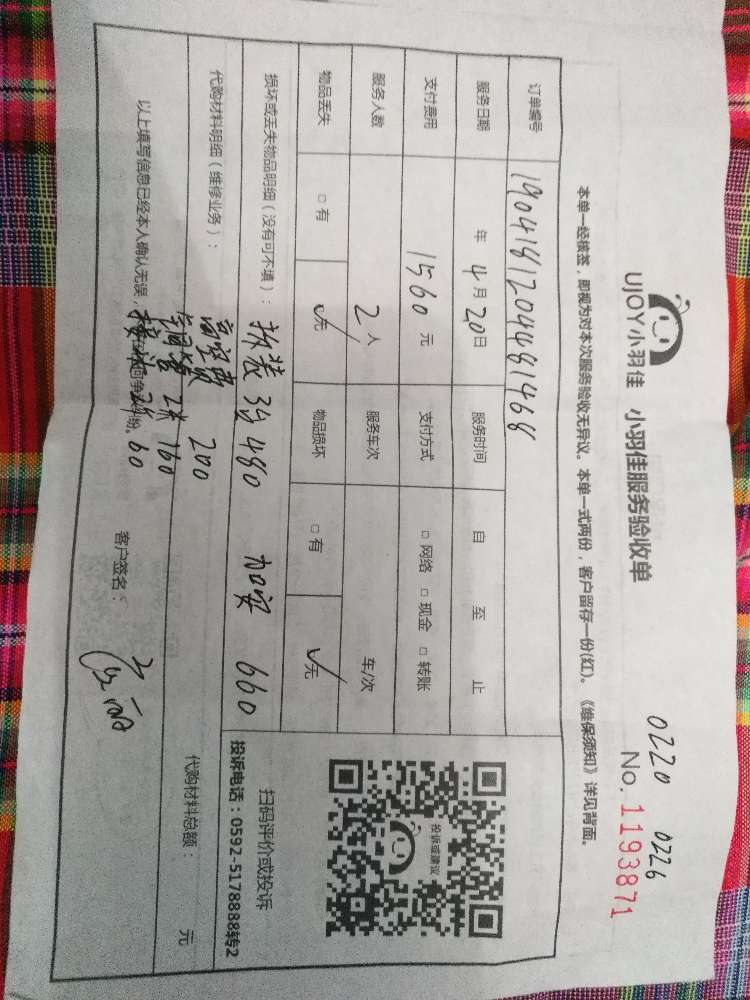 0220 0226
UJOY小羽佳 小羽佳服务验收单
No. 1193871
本单一经核签，即视为对本次服务验收无异议。本单一式两份，客户留存一份(红)。《维保须知》详见背面。
订单编号 1904181204481468
服务日期 年 4月20日 服务时间 自 至 止
支付费用 1560元 支付方式 □网络 □现金 □转账
服务人数 2人 服务车次 车/次
物品丢失 □有 ✓无 物品损坏 □有 ✓无
损坏或丢失物品明细（没有可不填）： 拆装 3台 480 加氟 660
代购材料明细（维修业务）： 高空费 200
铜管 2米 160
60
代购材料总额： 元
以上填写信息已经本人确认无误，
客户签名：
投诉或建议
扫码评价或投诉
投诉电话：0592-5178888转2